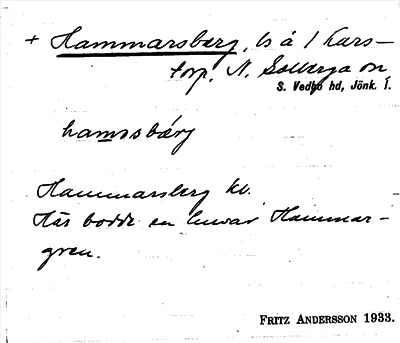 + Hammarsberg, ls å 1 Kars-
torp, N. Solberga sn
S. Vedbo hd, Jönk. l.
hamɔsbærj
Hammarsberg kv.
Här bodde en Hammar-
gren.
FRITZ ANDERSSON 1933.